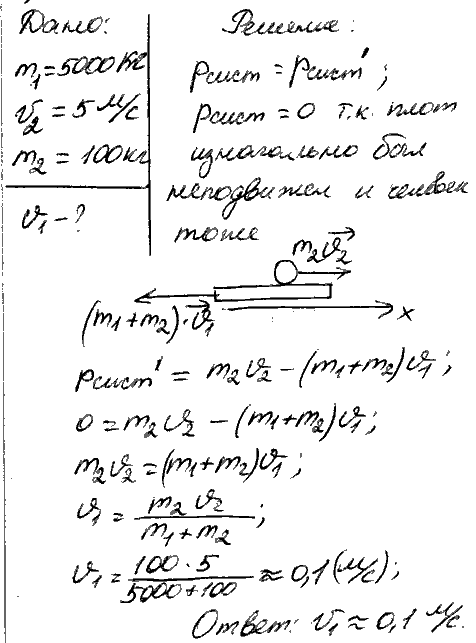 Дано:
m₁=5000 кг
v₂ = 5 м/с
m₂ = 100кг
v₁ - ?
Решение:
Pсист = Pсист';
Pсист = 0 т.к. плот
изначально был
неподвижен и человек
тоже
m₂v₂
(m₁+m₂)·v₁
x
Pсист' = m₂v₂ – (m₁+m₂)v₁;
0 = m₂v₂ – (m₁+m₂)v₁;
m₂v₂ = (m₁+m₂)v₁;
v₁ = m₂v₂ / m₁+m₂;
v₁ = 100·5 / 5000+100 ≈ 0,1 (м/с);
Ответ: v₁ ≈ 0,1 м/с.